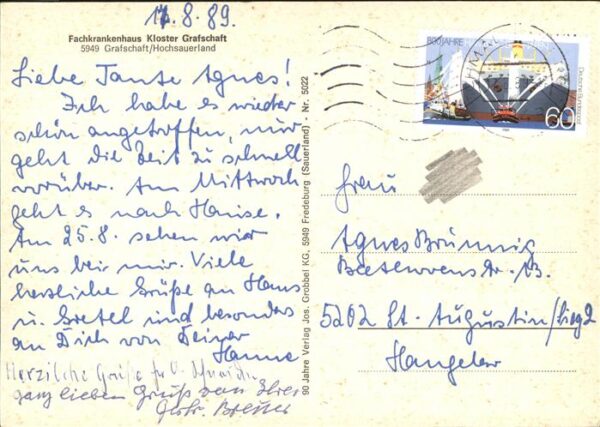 17.8.89.
Fachkrankenhaus Kloster Grafschaft
5949 Grafschaft/Hochsauerland
Liebe Tante Agnes!
Ich habe es wieder
schön angetroffen, nur
geht die Zeit zu schnell
vorüber. Am Mittwoch
geht es nach Hause.
Am 25.8. sehen wir
uns bei mir. Viele
herzliche Grüße an Hans
u. Gretel und besonders
an Dich von Deiner
Hanne
Herzliche Grüße
ganz lieben Gruß von Ihrer
90 Jahre Verlag Jos. Grobbel KG, 5949 Fredeburg (Sauerland) - Nr. 5022
800 JAHRE
Deutsche Bundespost
60
Frau
Agnes Brünnig
Beethovenstr.
5202 St. Augustin/Sieg 2
Hangelar